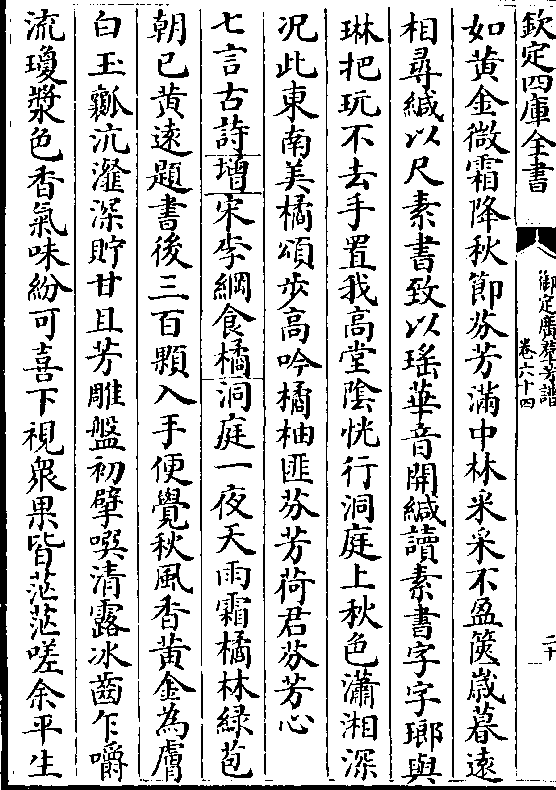 欽定四庫全書
御定廣羣芳譜
卷六十四
二十
如黃金微霜降秋節芬芳滿中林采采不盈篋嵗暮遠
相尋緘以尺素書致以瑤華音開緘讀素書字字瑯與
琳把玩不去手置我高堂陰恍行洞庭上秋色瀟湘深
况此東南美橘頌歩高吟橘柚匪芬芳荷君芬芳心
七言古詩增宋李綱食橘洞庭一夜天雨霜橘林緑苞
朝已黃逺題書後三百顆入手便覺秋風香黃金為膚
白玉瓤沆瀣深貯甘且芳雕盤初擘噀清露冰齒乍嚼
流瓊漿色香氣味紛可喜下視衆果皆茫茫嗟余平生